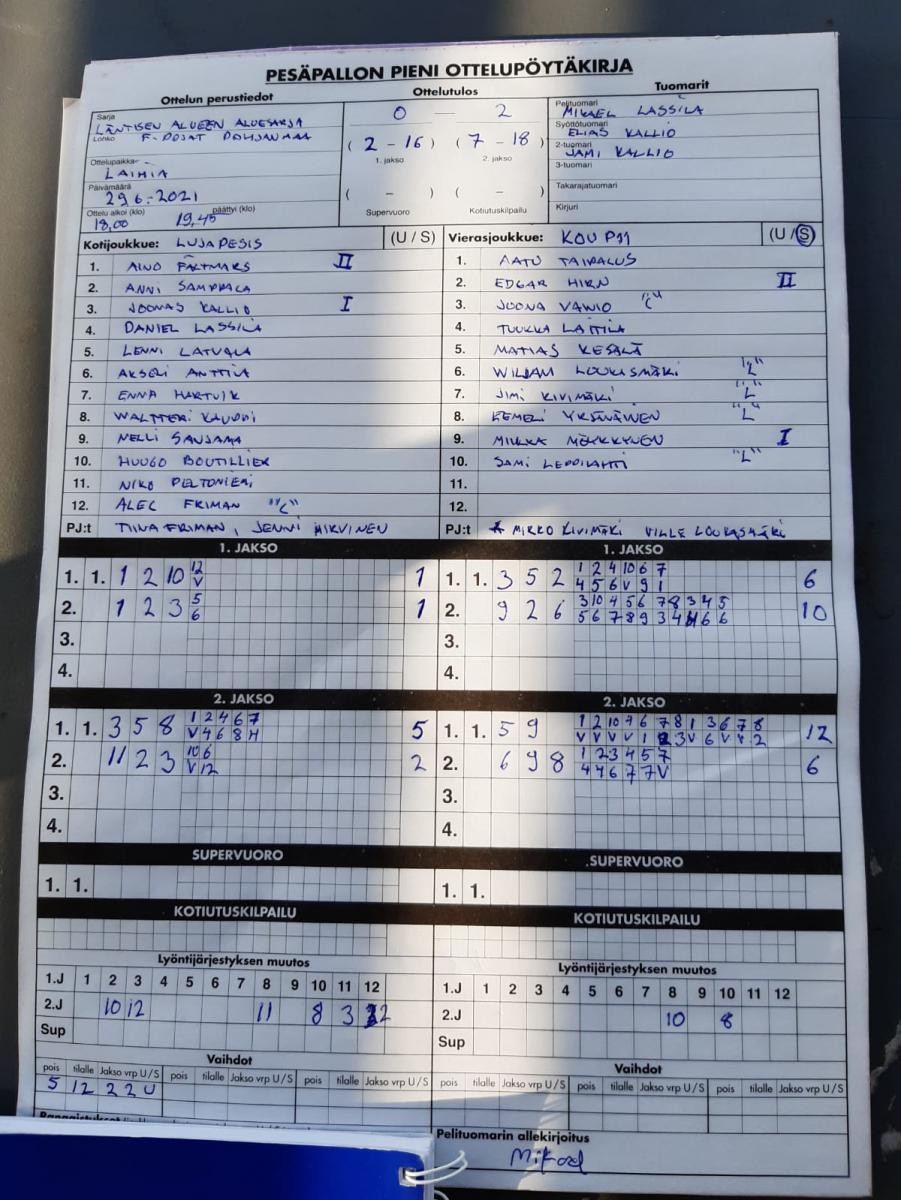 PESÄPALLON PIENI OTTELUPÖYTÄKIRJA
Ottelun perustiedot
Sarja
LÄNTISEN ALUEEN ALUESARJA
Lohko F-POJAT POHJANMAA
Ottelupaikka
LAIHIA
Päivämäärä
29.6.2021
Ottelu alkoi (klo) päättyi (klo)
18,00 19,45
Ottelutulos
0 — 2
( 2 - 16 ) ( 7 - 18 )
1. jakso 2. jakso
( - ) ( - )
Supervuoro Kotiutuskilpailu
Tuomarit
Pelituomari
MIKAEL LASSILA
Syöttötuomari
ELIAS KALLIO
2-tuomari
JAMI KALLIO
3-tuomari
Takarajatuomari
Kirjuri
Kotijoukkue: LUJAPESIS (U / S)
1. AINO FÄLTMARS II
2. ANNI SAMPPALA
3. JOONAS KALLIO I
4. DANIEL LASSILA
5. LENNI LATVALA
6. AKSELI ANTTILA
7. ENNA HARTVIK
8. WALTTERI
9. NELLI SANJAMA
10. HUUGO BOUTILLIER
11. NIKO PELTONIEMI
12. ALEC FRIMAN "C"
PJ:t TIINA FRIMAN, JENNI HIRVINEN
Vierasjoukkue: KOUP11 (U / S)
1. AATU TAIPALUS
2. EDGAR HIRN II
3. JOONA VAINIO "C"
4. TUUKKA LAITILA
5. MATIAS KESÄLÄ
6. WILJAM LOUKASMÄKI "L"
7. JIMI KIVIMÄKI "L"
8. EEMELI YKSINÄINEN "L"
9. MIIKKA MÖYKKYNEN I
10. SAMI LEPPILAHTI "L"
11.
12.
PJ:t MIRKO KIVIMÄKI VILLE LOUKASMÄKI
1. JAKSO
1. 1. 1 2 10 12 1
V
2. 1 2 3 5 1
6
3.
4.
1. JAKSO
1. 1. 3 5 2 1 2 4 10 6 7 6
4 5 6 V 9 1
2. 9 2 6 3 10 4 5 6 7 8 3 4 5 10
5 6 7 8 9 3 4 6 6
3.
4.
2. JAKSO
1. 1. 3 5 8 1 2 4 6 7 5
V 4 6 8 H
2. 11 2 3 10 6 2
V 12
3.
4.
2. JAKSO
1. 1. 5 9 1 2 10 4 6 7 8 1 3 6 7 8 12
V V V V 1 2 3 V 6 V V 2
2. 6 9 8 1 2 3 4 5 7 6
4 4 6 7 7 V
3.
4.
SUPERVUORO
1. 1.
SUPERVUORO
1. 1.
KOTIUTUSKILPAILU
KOTIUTUSKILPAILU
Lyöntijärjestyksen muutos
1.J 1 2 3 4 5 6 7 8 9 10 11 12
2.J 10 12 11 8 3 2
Sup
Lyöntijärjestyksen muutos
1.J 1 2 3 4 5 6 7 8 9 10 11 12
2.J 10 8
Sup
Vaihdot
pois tilalle Jakso vrp U/S pois tilalle Jakso vrp U/S
5 12 2 2 U
Vaihdot
pois tilalle Jakso vrp U/S pois tilalle Jakso vrp U/S
Pelituomarin allekirjoitus